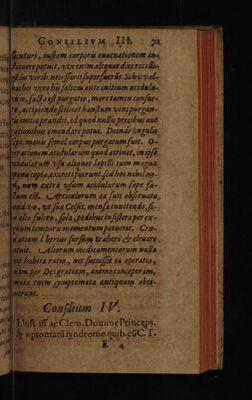 CONSILIUM III. 71
secuturi, iustam corporis euacuationem in-
stituere potuit, vix enim aliquot dies recolli-
gẽdis virib. necessarij superfuerũt. Schvval-
bachij verò biis saltem ante initium acidula-
rum, facta est purgatio, more tamen consue-
to, accipiendo scilicet haustum vini purgan-
tis initio prandij, id quod nullis precibus aut
rationibus emendare potui. Deinde singulis
septimanis semel corpus purgatum fuit. O-
perationem acidularum quod attinet, in ipso
acidularum vsu aliquot lapilli cum magna
arena copia, excreti fuerunt, sed hoc nihil no-
ui, nam extra vsum acidularum sæpe fa-
ctum est. Articulorum ea fuit obseruata,
quod vt sua Celsit. mensæ innitendo, si-
ne alio fulcro, sola, pedibus insistere per ex-
iguum temporis momentum potuerit. Cru-
ra etiam l herius sursum trahere & eleuare
potuit. Aliorum medicamentorum nulla
fuit habita ratio, nec successit ea operatio,
quam per Dei gratiam, animo conceperam,
omnia enim symptomata antiquum obti-
nuerunt.
Consilium IV.
Illust. iss ac Clem. Domine Princeps,
symptomatũ syndrome, quib. eũ C. T.
E 4